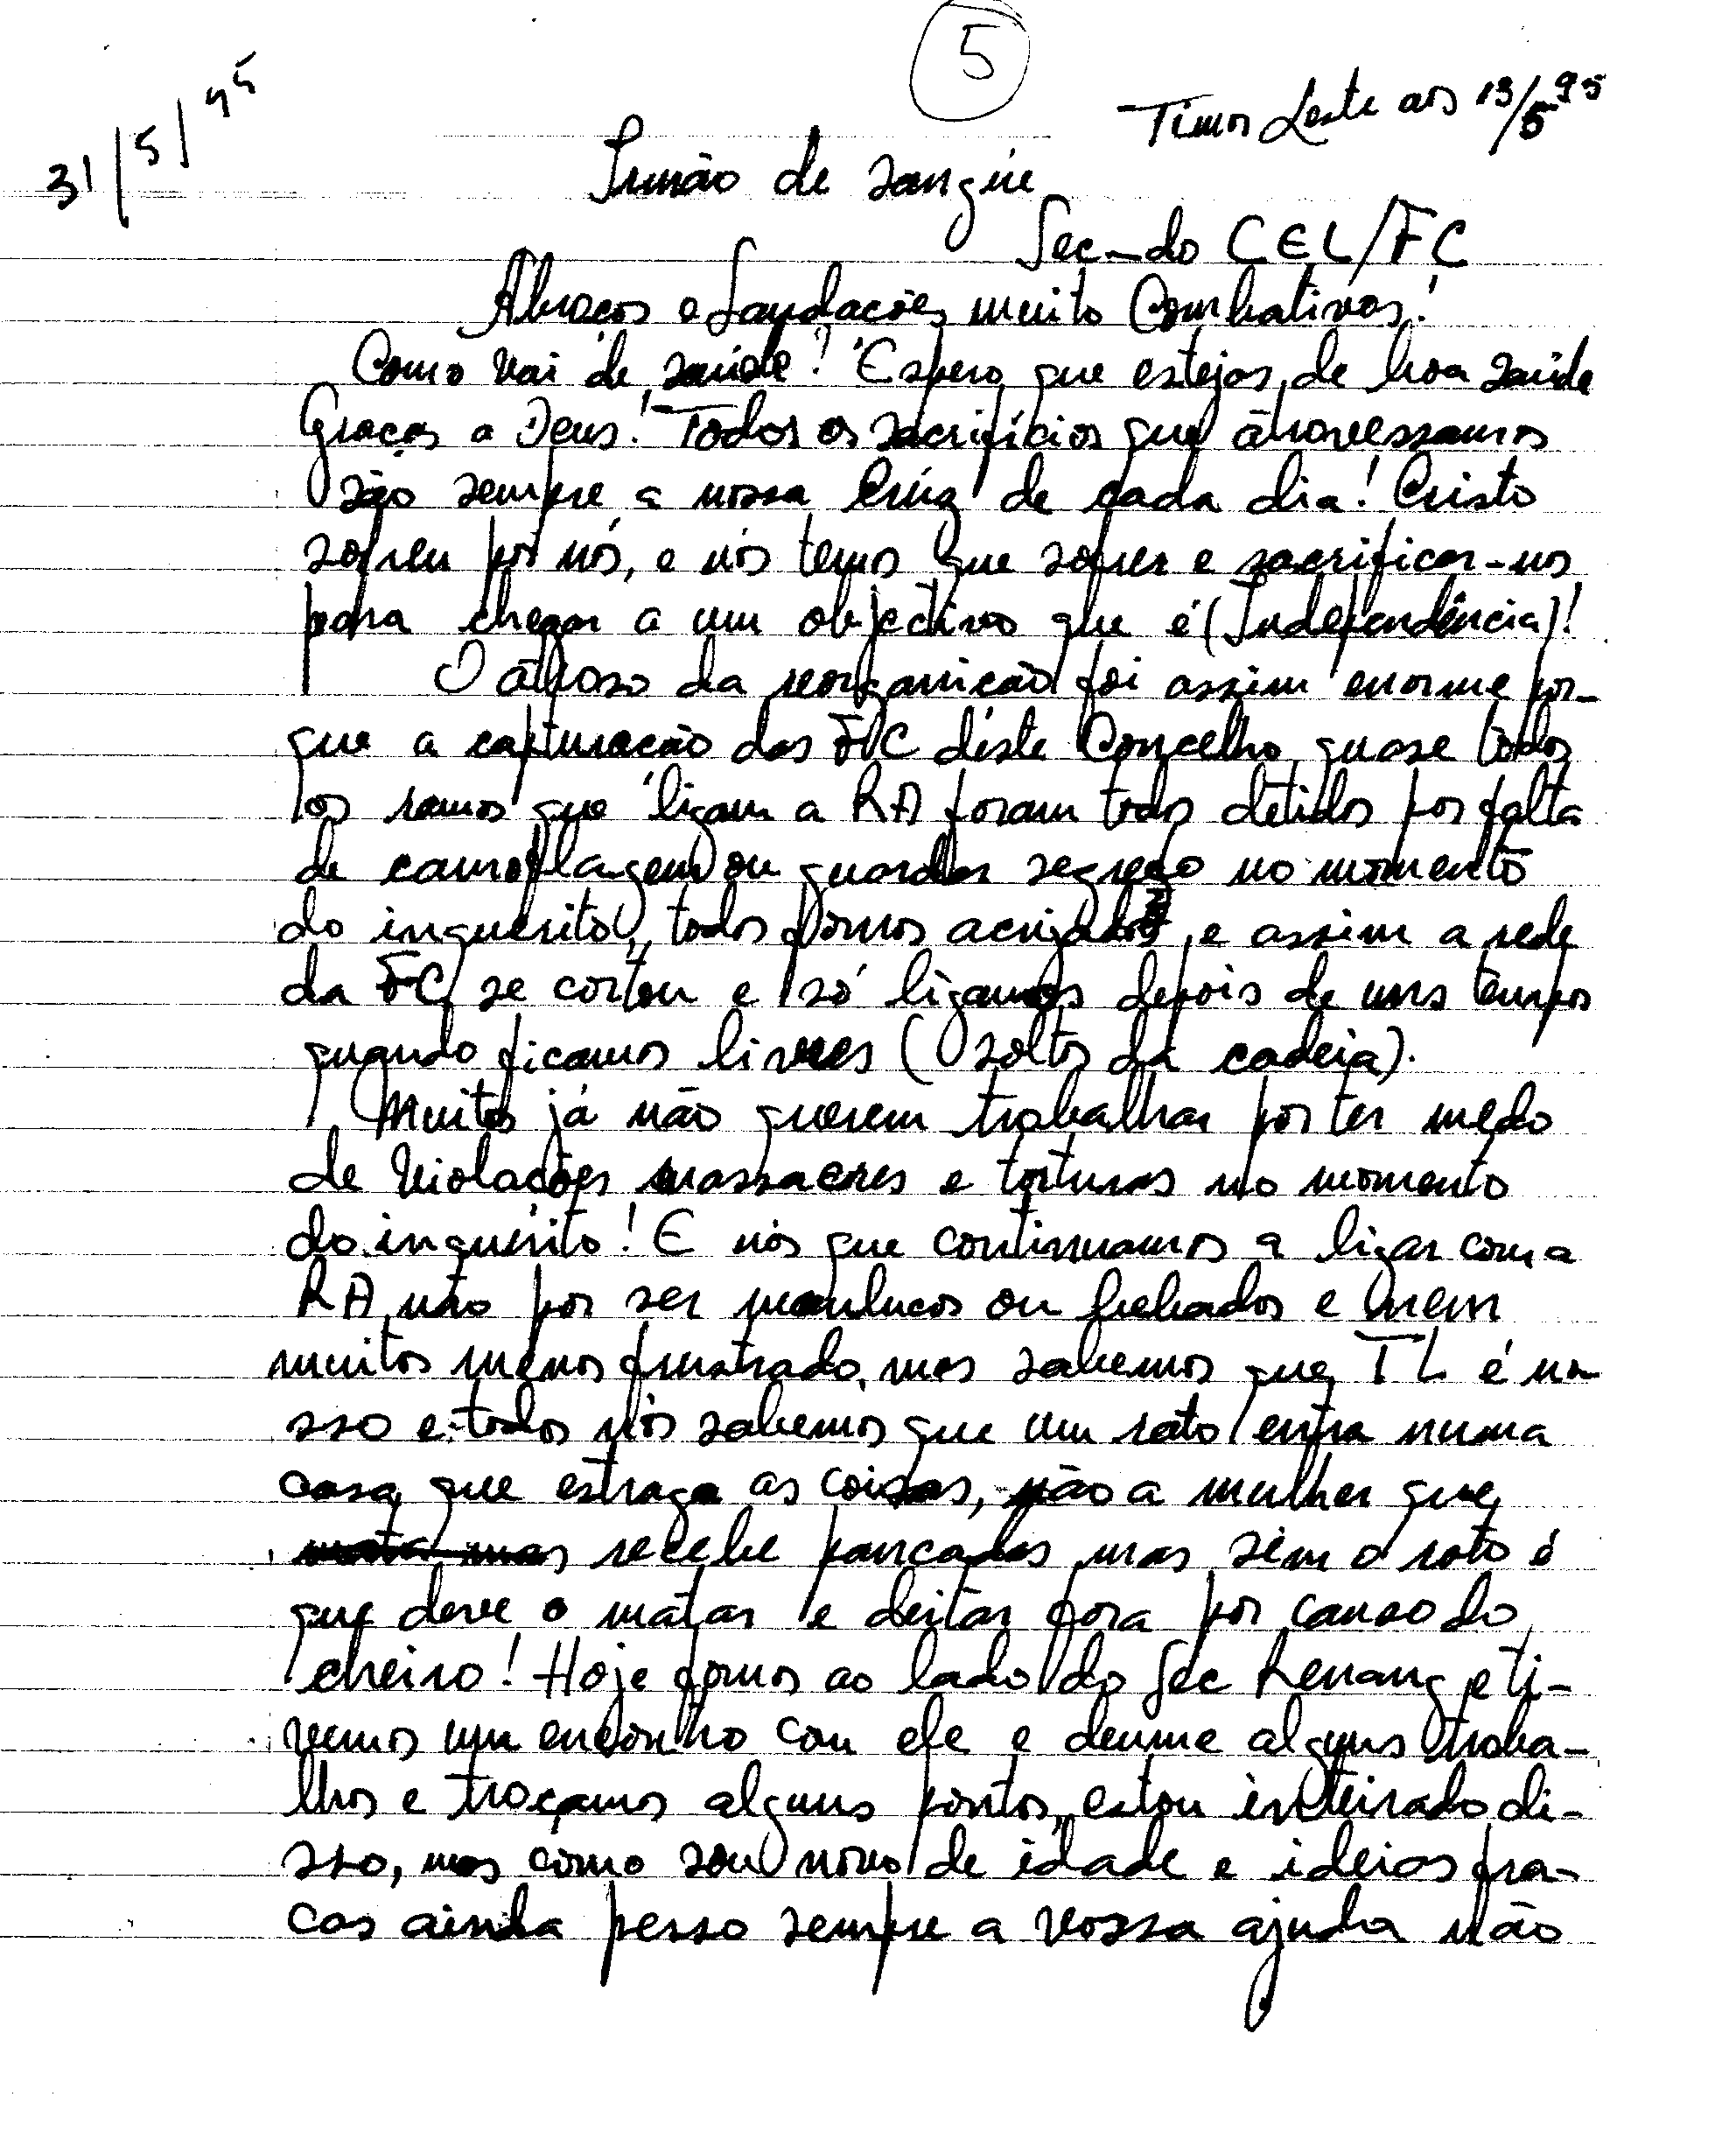 5
31/5/95
Timor Leste aos 13/5 95
Irmão de sangüe
Sec-do CEL/FC
Abraços e Saudações muito Combativas!
Como vai de saúde? Espero que estejas de boa saúde
Graças a Deus! Todos os sacrifícios que àtravessamos
são sempre a nossa Crúz de cada dia! Cristo
sofreu por nós, e nós temos que sofrer e sacrificar-nos
para chegar a um objectivo que é (Independência)!
O àtraso da reorganição foi assim enorme por-
que a capturação das FC dêste Concelho, quase todos
os ramos que ligam a RA foram todos detidos por falta
de camoflagem ou guardar segredo no momento
do inquerito, todos fomos acuzados, e assim a rede
da FC se cortou e só ligamos depois de uns tempos
quando ficamos livres (soltos da cadeia).
Muitos já não querem trabalhar por ter medo
de violações massacres e torturas no momento
do inquérito! E nós que continuamos a ligar com a
RA não por ser malucos ou bebados e nem
muitos menos frustrado, mas sabemos que TL é no-
sso e todos nós sabemos que um rato entra numa
casa que estraga as coisas, não a mulher que
recebe pancadas mas sim o rato é
que deve o matar e deitar fora por causo do
cheiro! Hoje fomos ao lado do Sec Renang e ti-
vemos um encontro com ele e deume alguns traba-
lhos e troçamos alguns pontos, estou inteirado di-
sso, mas como sou novo de idade e ideias fra-
cas ainda pesso sempre a vossa ajuda não